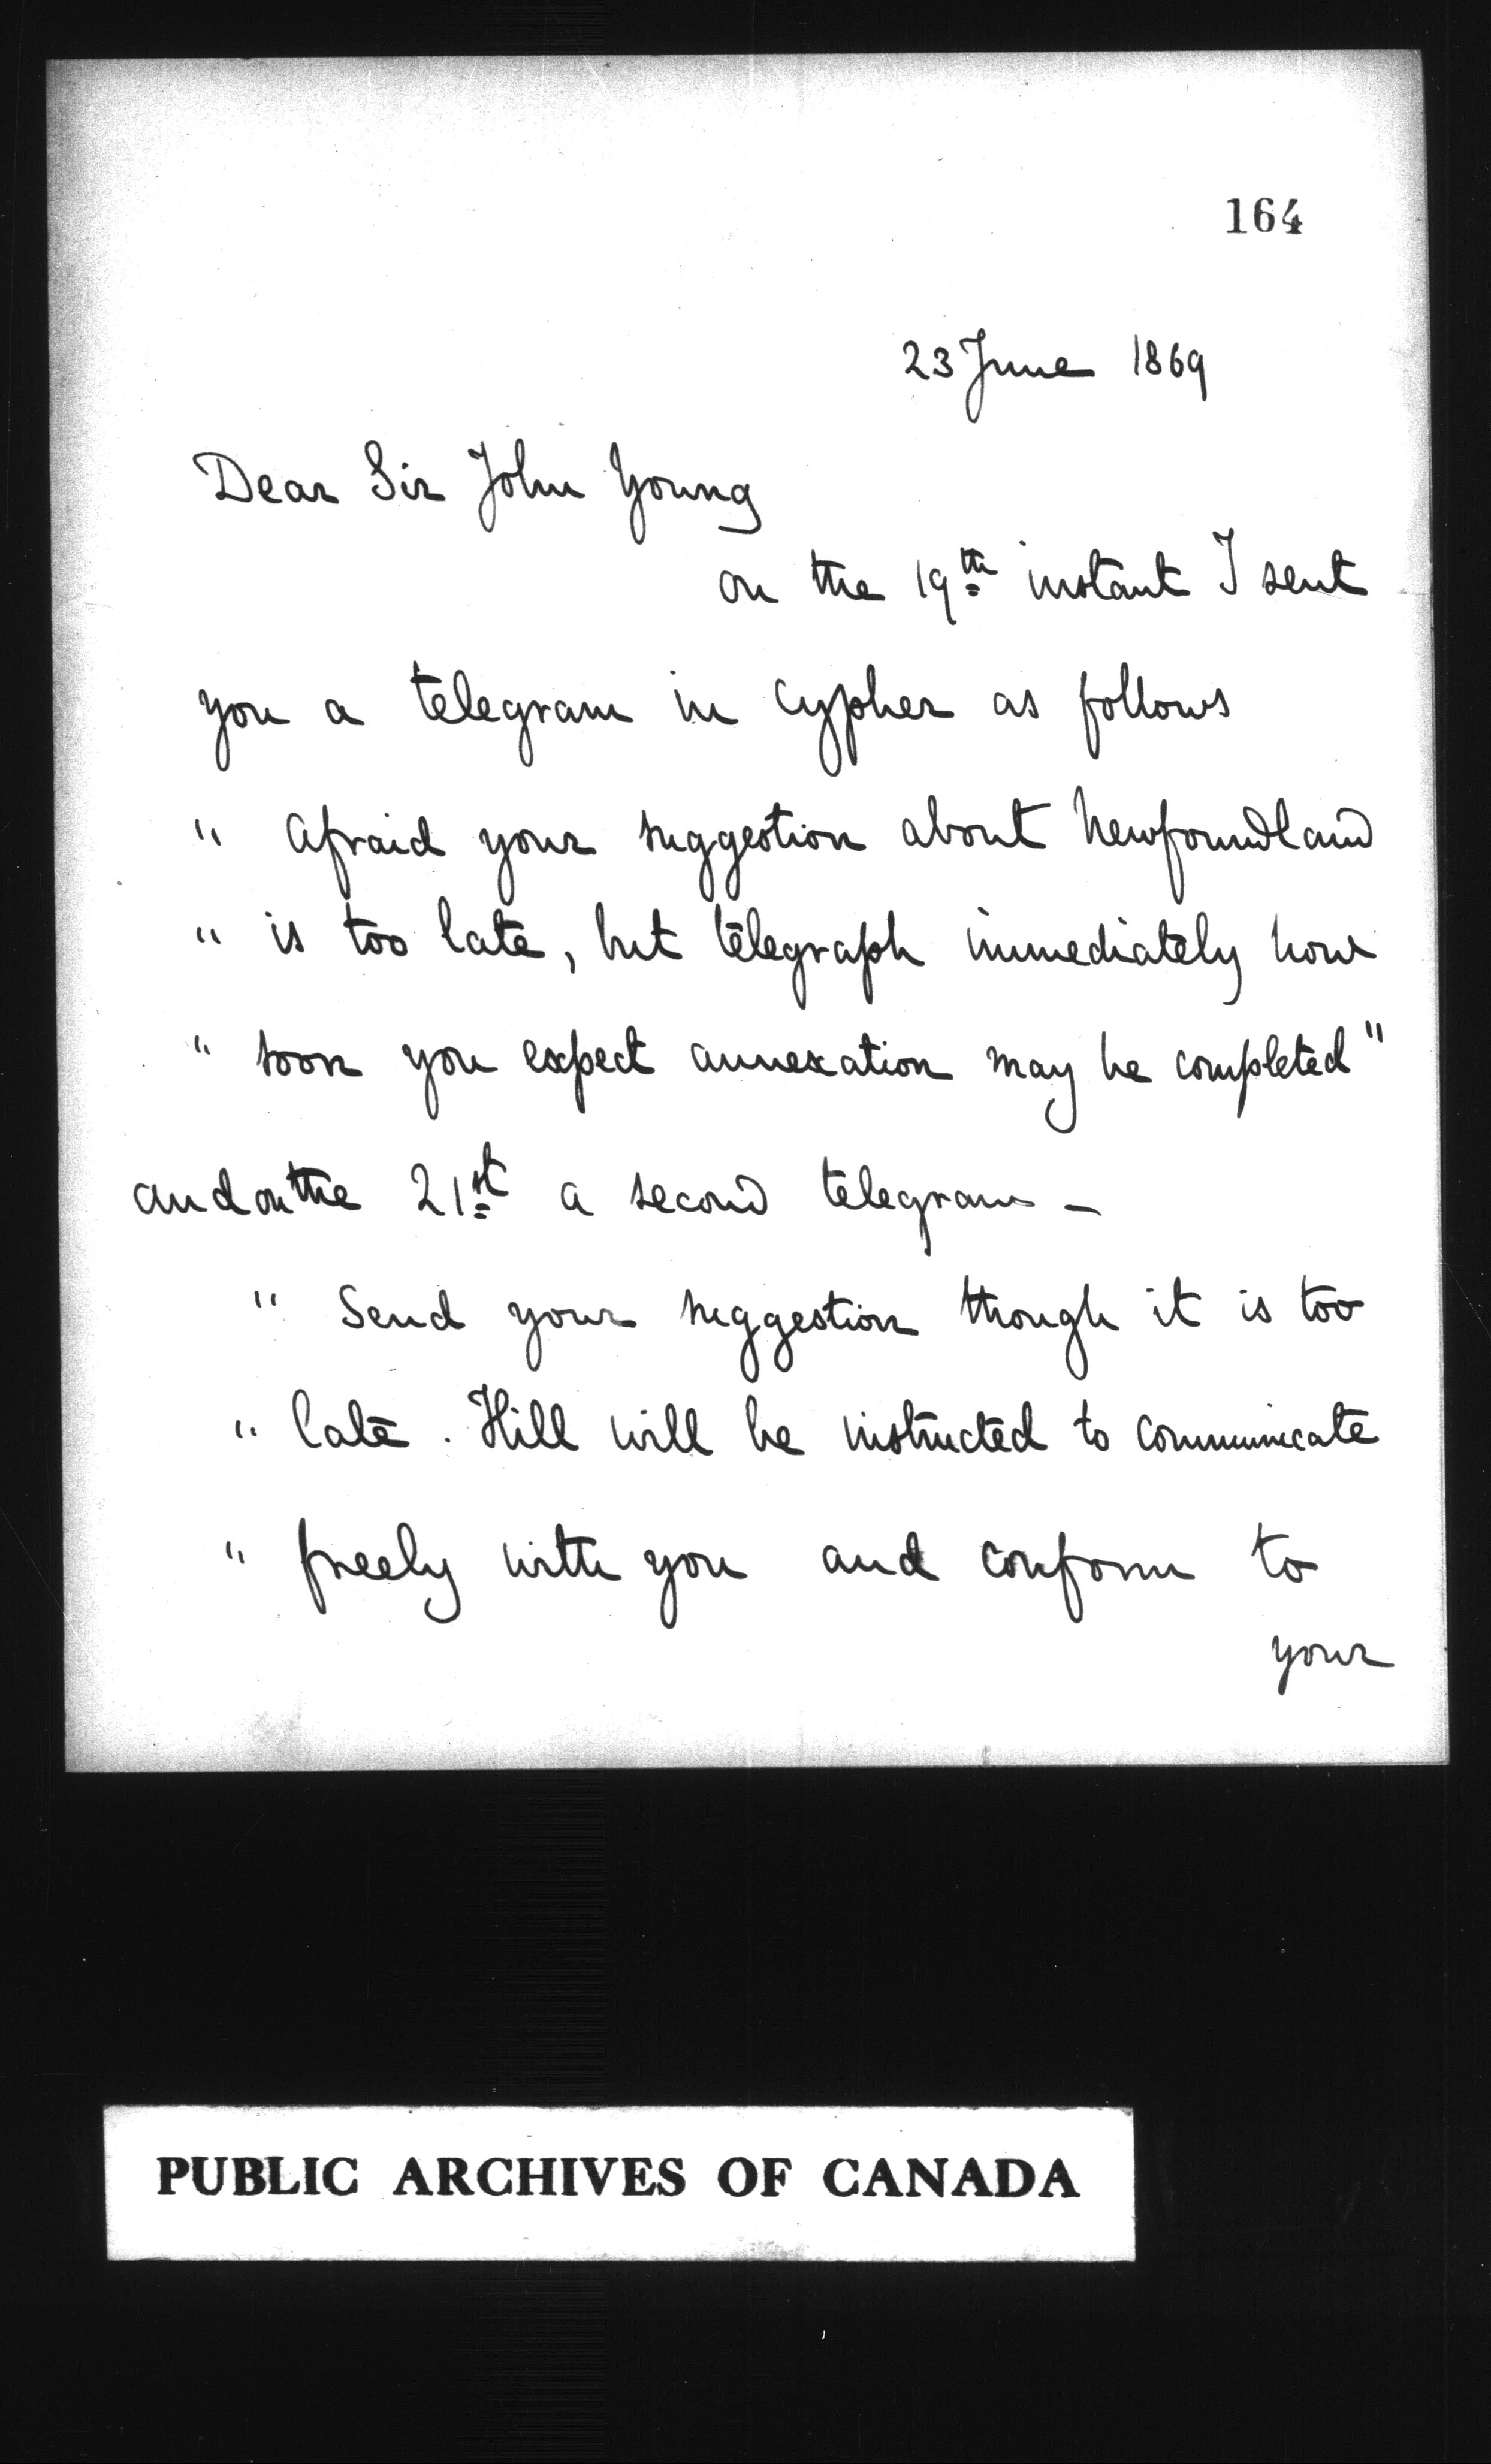 164
23 June 1869
Dear Sir John Young
on the 19th instant I sent
you a telegram in cypher as follows
" Afraid your suggestion about Newfoundland
" is too late, but telegraph immediately how
" soon you expect annexation may be completed"
and on the 21st a second telegram –
" Send your suggestion though it is too
" late. Hill will be instructed to communicate
" freely with you and conform to
your
PUBLIC ARCHIVES OF CANADA